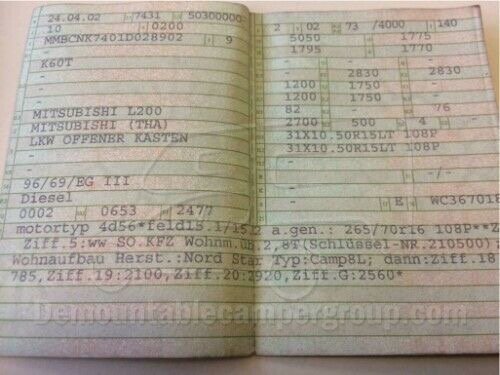 24.04.02 7431 50300000-
10 0200
MMBCNK7401D028902 9
-
K60T
-
-
MITSUBISHI L200
MITSUBISHI (THA)
LKW OFFENER KASTEN
-
96/69/EG III
Diesel
0002 0653 2477
2 02 73 /4000 140
5050 1775
1795 1770
- -
- 2830 2830
1200 1750 -
1200 1750 -
82 - 76
2700 500 4 -
31X10.50R15LT 108P
31X10.50R15LT 108P
-
- -/-
-
- E WC367018
motortyp 4d56*feld15.1/1512 a.gen.: 265/70r16 108P**Z
Ziff.5:ww SO.KFZ Wohnm.üb.2,8T(Schlüssel-NR.210500)
Wohnaufbau Herst.:Nord Star Typ:Camp8L; dann:Ziff.18
785,Ziff.19:2100,Ziff.20:2920,Ziff.G:2560*
Demountablecampergroup.com